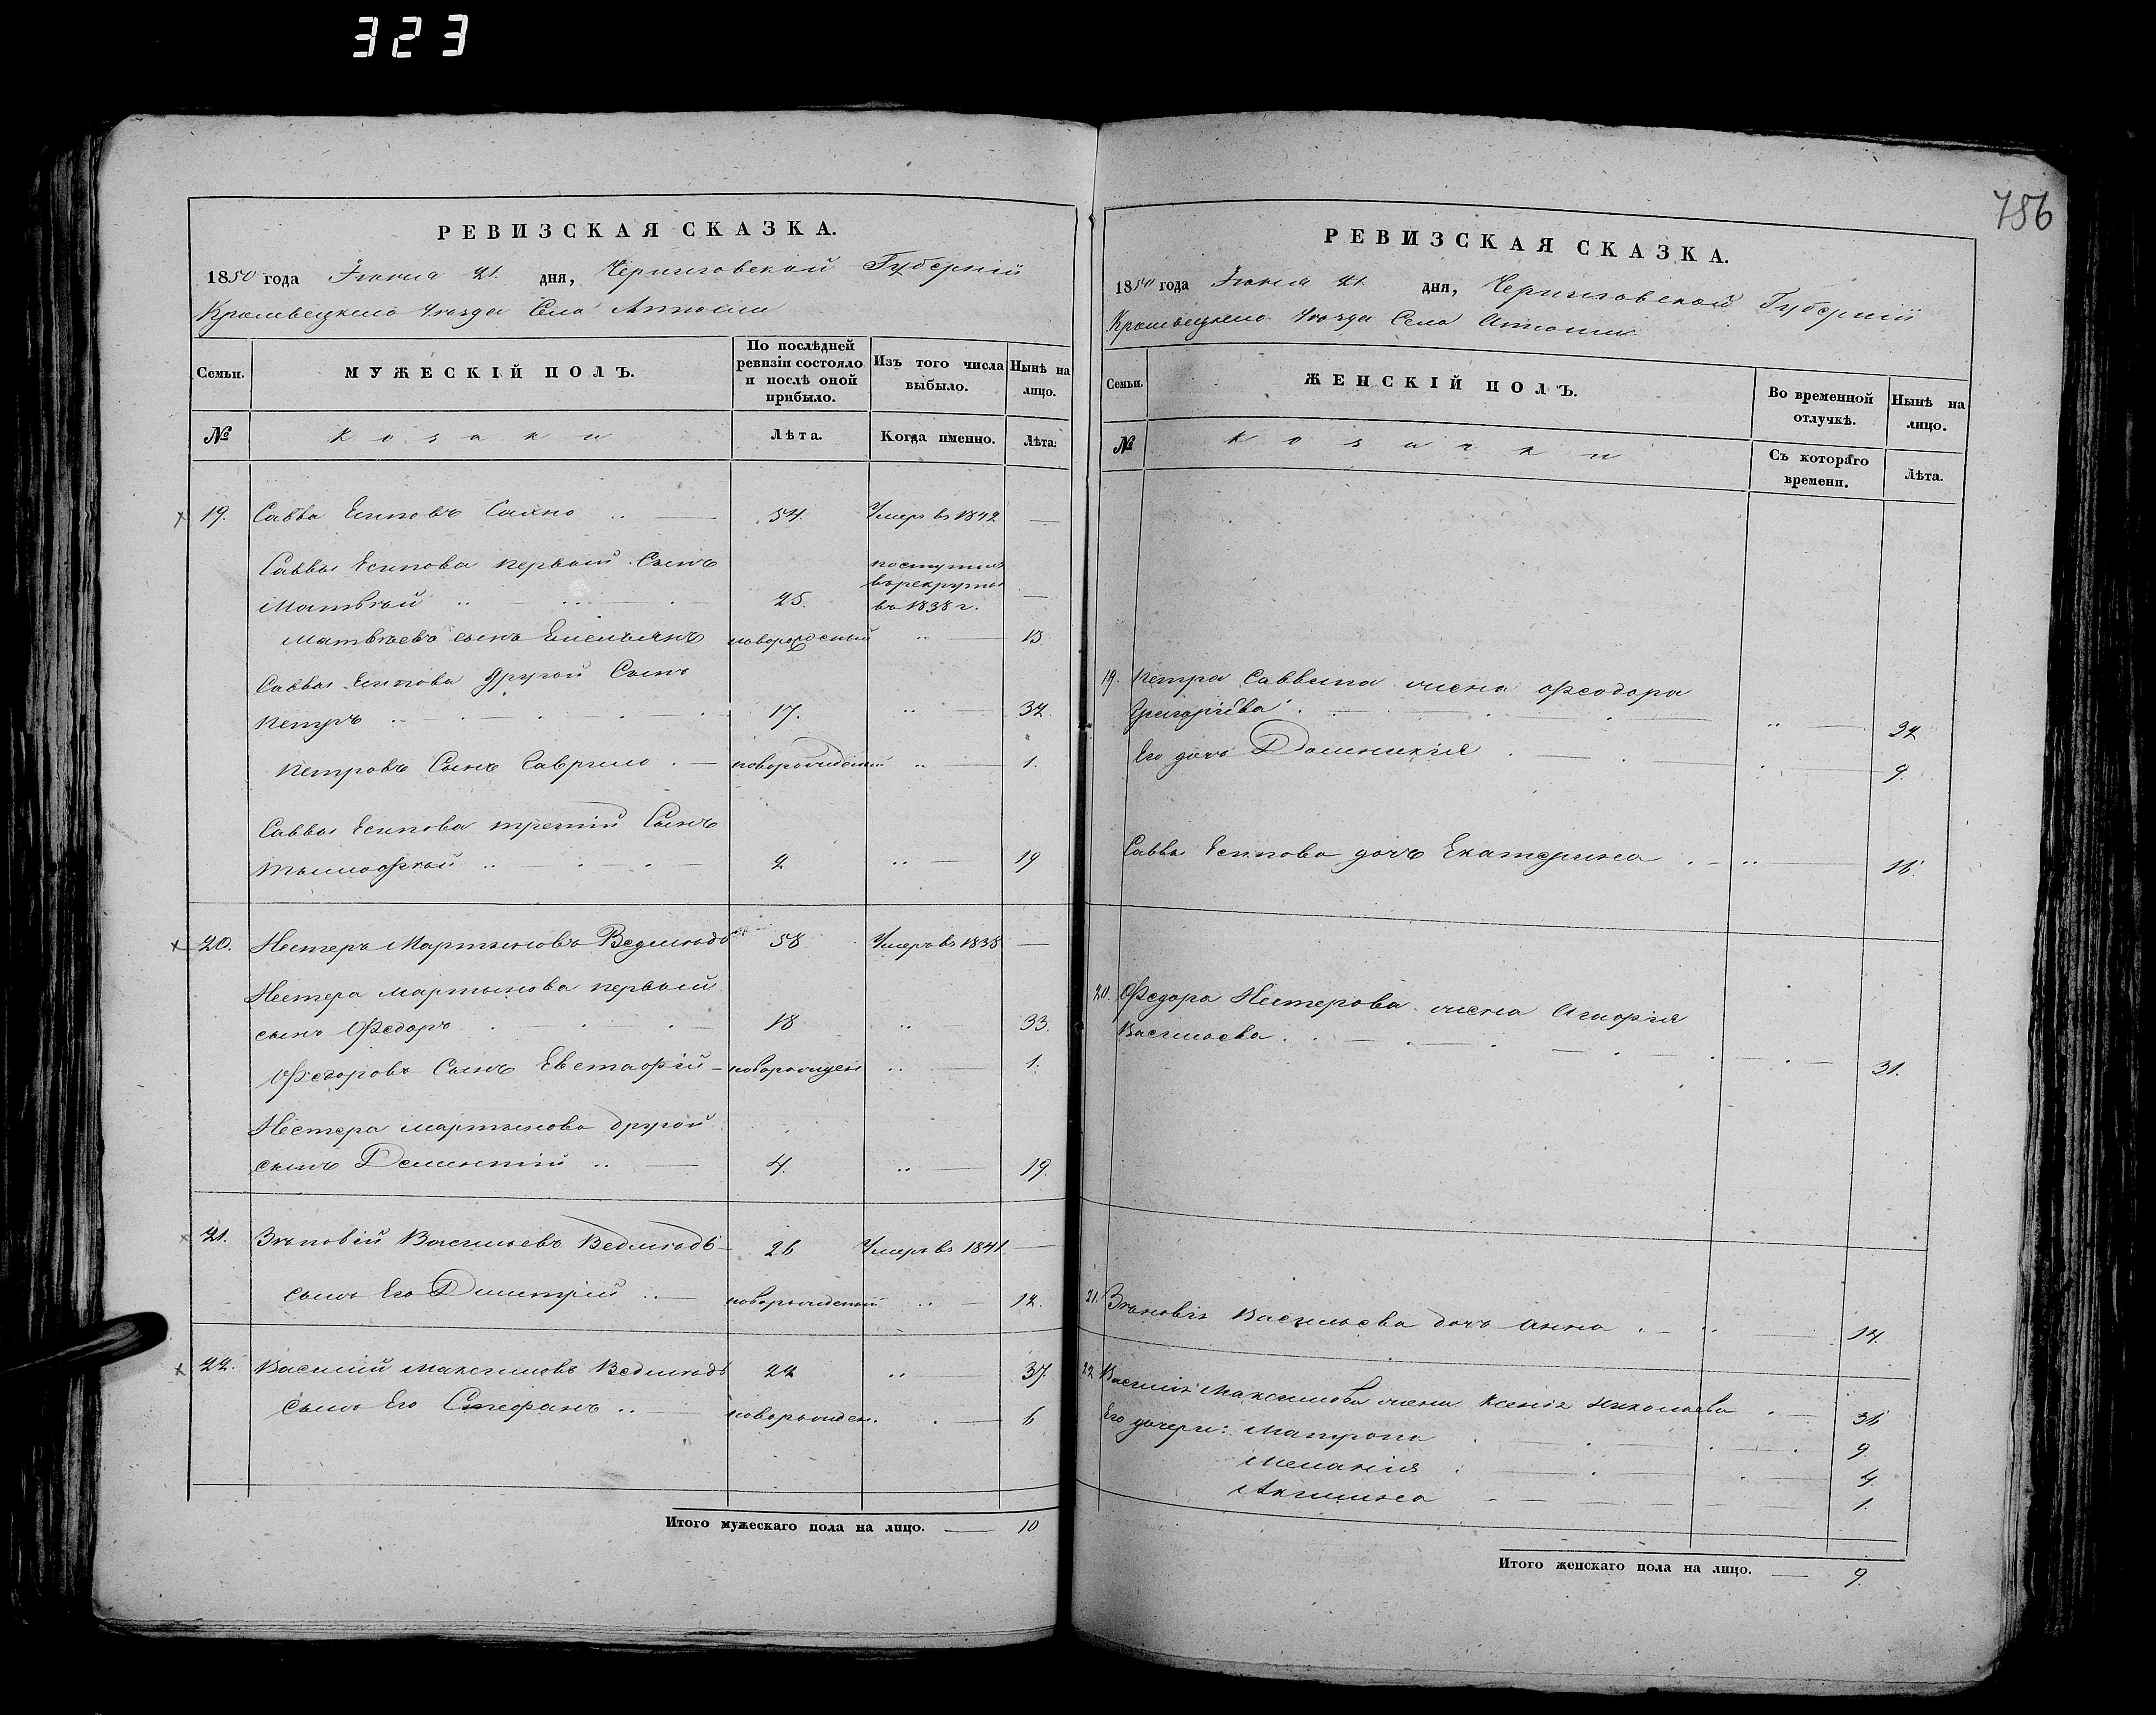 323
756
РЕВИЗСКАЯ СКАЗКА.
1850 года Іюня 21. дня, Черниговской Губерніи
Кролевецкаго Уѣзда Села
МУЖЕСКІЙ ПОЛЪ.
Семьи.
По послѣдней ревизіи состояло и послѣ оной прибыло.
Изъ того числа выбыло.
Нынѣ на лицо.
№
Козаки
Лѣта.
Когда именно.
Лѣта.
19. Савва Есиповъ 54. Умеръ въ 1842 —
Саввы Есипова первый Сынъ поступилъ
Матвѣй 25. въ рекруты
въ 1838 г. —
Матвѣевъ сынъ Емельянъ новорожденый " 13.
Саввы Есипова другой Сынъ
Петръ 17. " 32.
Петровъ Сынъ Гаврило новорожденый " 1.
Саввы Есипова третій Сынъ
Тымофѣй 2 " 19
20. Нестеръ Мартыновъ Ведмѣдь 58 Умеръ въ 1838 —
Нестера Мартынова первый
сынъ Ѳедоръ 18 " 33.
Ѳедоровъ Сынъ Евстафій новорожден " 1.
Нестера Мартынова другой
сынъ Дементій 4. " 19.
21. Зѣновій Васильевъ Ведмѣдь 26 Умеръ въ 1841 —
сынъ Его Димитрій новорожденый " 12.
22. Василій Максимовъ Ведмѣдь 22 " 37.
Сынъ Его Стефанъ новорожден. 6
Итого мужескаго пола на лицо. — 10
РЕВИЗСКАЯ СКАЗКА.
1850 года Іюня 21. дня, Черниговской Губерніи
Кролевецкаго Уѣзда Села
Семьи.
ЖЕНСКІЙ ПОЛЪ.
Во временной отлучкѣ.
Нынѣ на лицо.
№
Козачки
Съ котораго времени.
Лѣта.
19. Петра Саввина жена Ѳеодора
Григоріева " 32
Его дочь Доминикія 9.
Саввы Есипова дочь Екатерина " 16.
20. Ѳедора Нестерова жена Агафія
Васильева 31.
21. Зѣновія Васильева дочь Анна " 14.
22 Василія Максимова жена Ксенія Николаева 36
Его дочери: Матрона 9.
Меланія 4.
Акилина 1.
Итого женскаго пола на лицо. — 9.